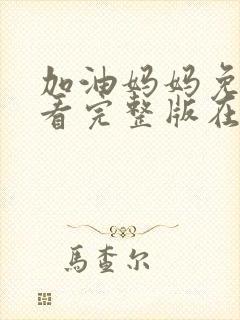 加油妈妈免
看完整版在
馬查尔